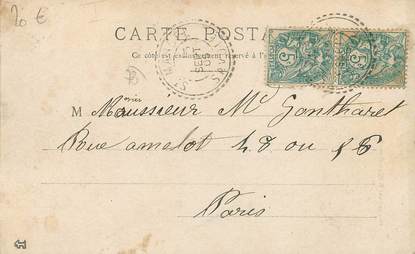 20 €
CARTE POSTALE
Ce côté est exclusivement réservé à l'
B
M Monssieur Mc Gontharet
Rue amelot 42 ou 46
Paris